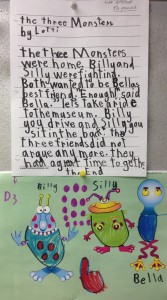 the three Monsters
by Lotti
the three Monsters
were home. Billy and
Silly were fighting.
Both wanted to be Bellas
best friend. Enough! said
Bella. lets take a ride
to the museum. Billy
you drive and Silly you
sit in the back. The
three friends did not
argue any more. they
had a great time together.
the End
D3
Billy
Silly
Bella